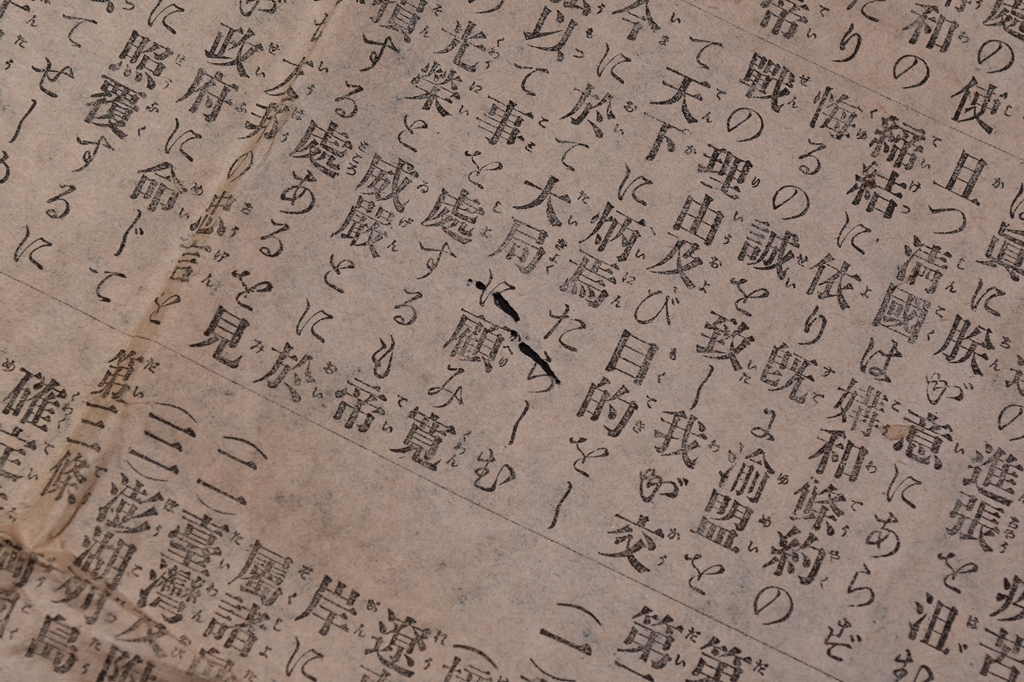 疾苦
の進張を沮む
は眞に朕が意にあらず
處の使
且つ淸國は媾和條約の
和の
締結に依り既に渝盟を
たり
悔るの誠を致し我が交
帝
戰の理由及び目的をし
て天下に炳焉たらしむ
今に於て大局に顧み寛
以て事を處するも帝
光榮と威嚴とに於
損する處あるを見
の忠言と
政府に命じて
に照覆するに
第
第
(一
遼
岸に
屬諸
(二)臺灣及附
(三)澎湖列島
第三條
確定